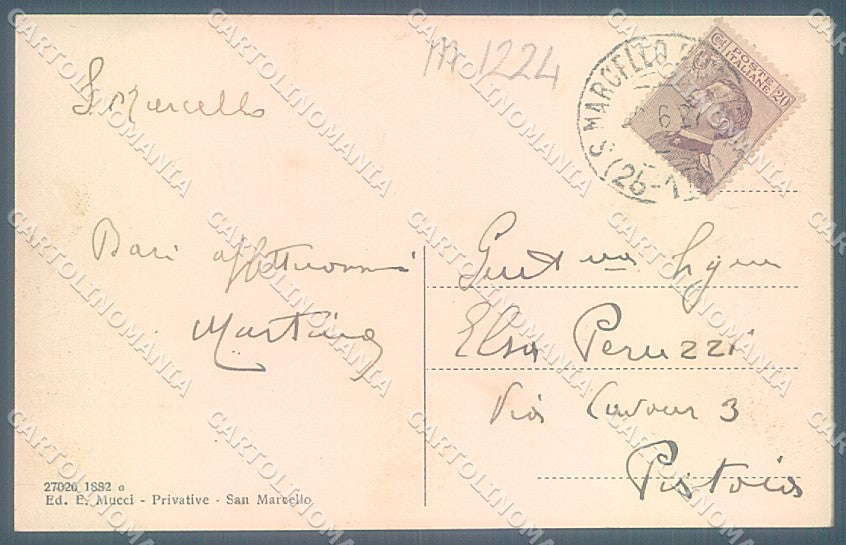 m 1224
S. Marcello
S. MARCELLO
6.27
(26-
POSTE ITALIANE 20
Baci affettuosissimi
Martino
Gent ma Sigra
Elsa Peruzzi
Via Cavour 3
Pistoia
27026 1882 o
Ed. E. Mucci - Privative - San Marcello
CARTOLINOMANIA